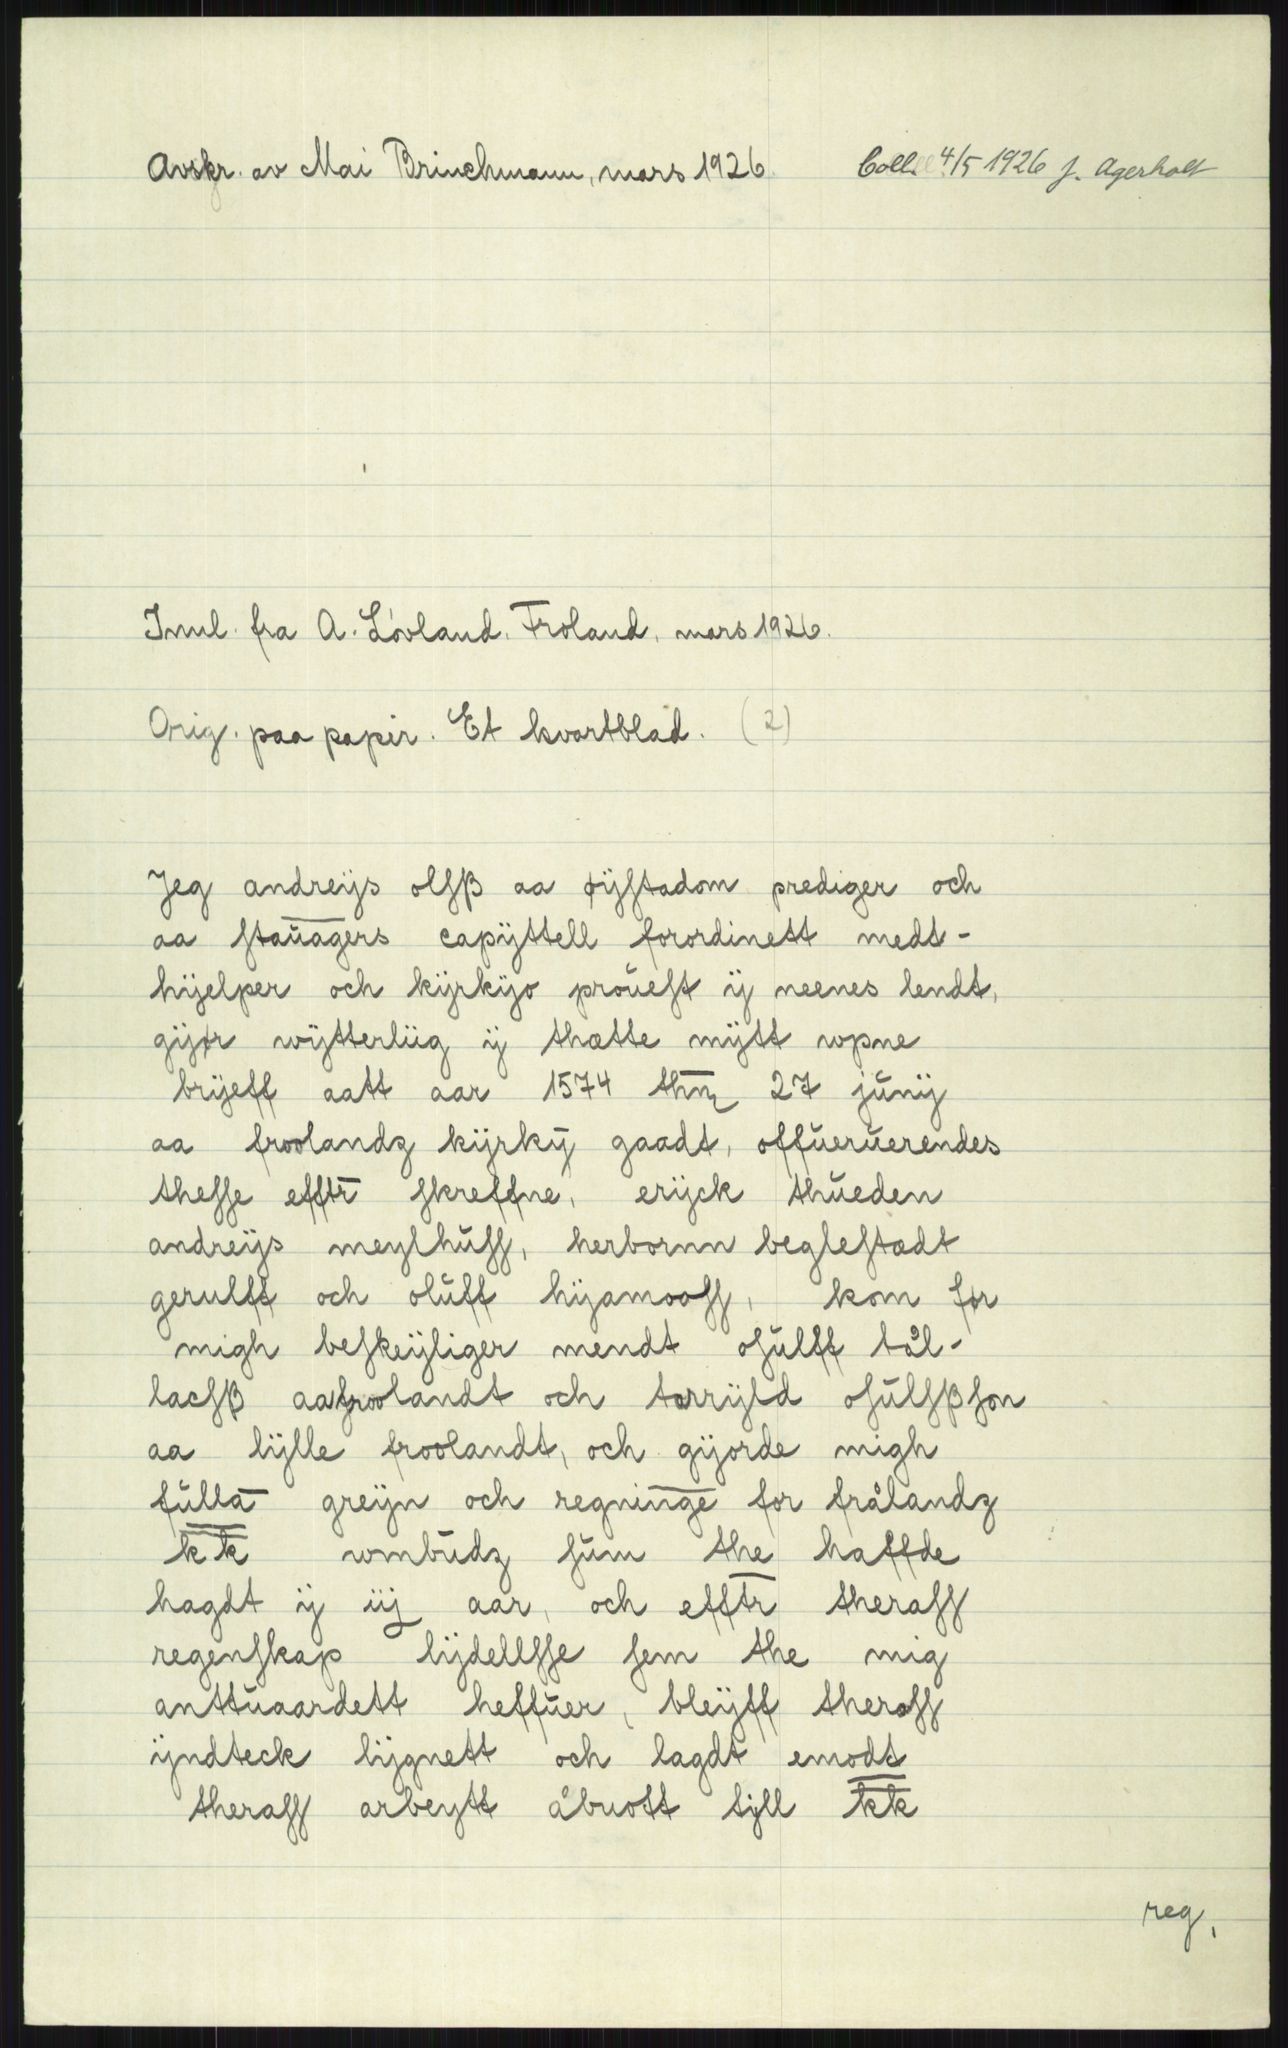 Avskr. av Mai Brinchmann, mars 1926. Coll. 4/5 1926 J. Agerholt
Innl. fra A. Løvland, Froland, mars 1926.
Orig. paa papir. Et kvartblad. (2)
Jeg andreÿs olſß aa øÿſtadom prediger och
aa ſtau̅a̅gers capÿttell forordinett medt-
hÿelper och kÿrkÿo proůeſt ÿ neenes lendt,
gÿør wÿtterliig ÿ thætte mÿtt wpne
brÿeff aatt aar 1574 thn̅ 27 jůnÿ
aa froolandz kÿrkÿ gaadt, offůerůerendes
theſſe efft̅r ſkreffne, erÿck thůeden
andreÿs meylhůſſ, herbornn begleſtædt
gerulff och olůff hÿamooſſ, kom før
migh beſkeÿliger mendt oſůlff tål-
lacſß aa froolandt och torrÿld oſůlſßſon
aa lÿlle froolandt, och gÿorde migh
fůlla̅ greÿn och regnin̅g̅e for frålandz
k̅k̅ wmbůdz ſům the haffde
hagdt ÿ iij aar, och efft̅r theraff
regenſkap lÿdellſſe ſem the mig
anttůaardett heffůer, bleÿff theraff
ÿndteck lÿgnett och lagdt emodt
theraff arbeytt åbrott tÿll k̅k̅
reg.